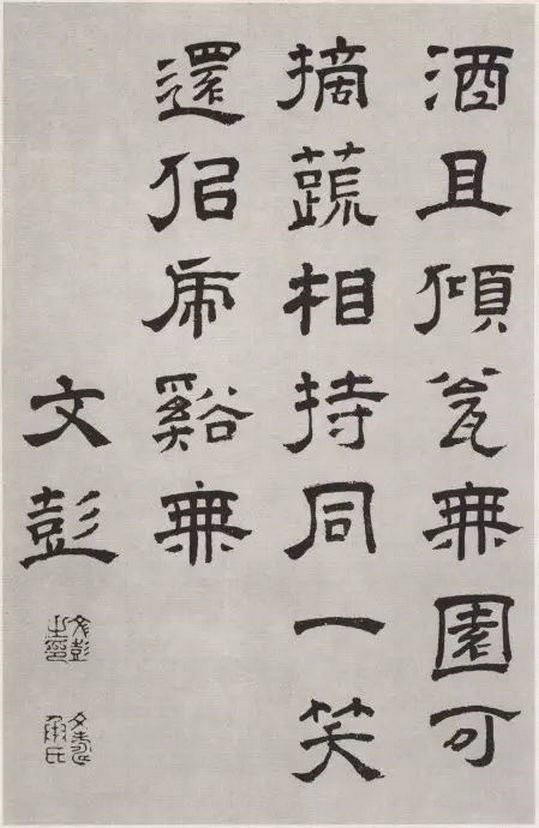 酒且傾瓮無園可
摘蔬相持同一笑
還佀虎谿無
文彭
文彭之印
文壽承氏